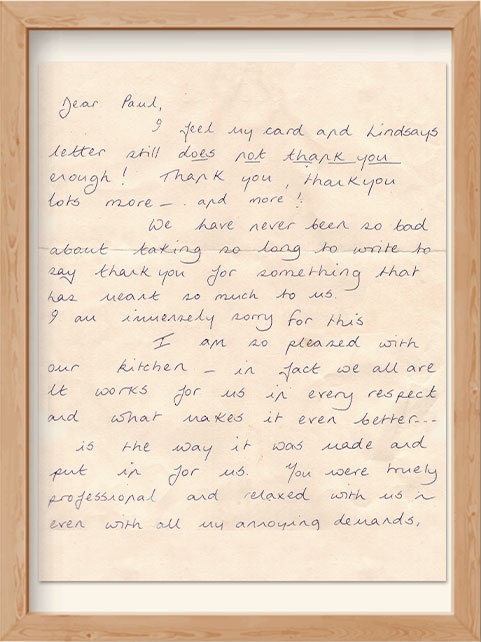 Dear Paul,
I feel my card and Lindsays
letter still does not thank you
enough! Thank you, thankyou
lots more – and more!
We have never been so bad
about taking so long to write to
say thank you for something that
has meant so much to us.
I am immensely sorry for this
I am so pleased with
our kitchen – in fact we all are
It works for us in every respect
and what makes it even better---
is the way it was made and
put in for us. You were truely
professional and relaxed with us in
even with all my annoying demands,